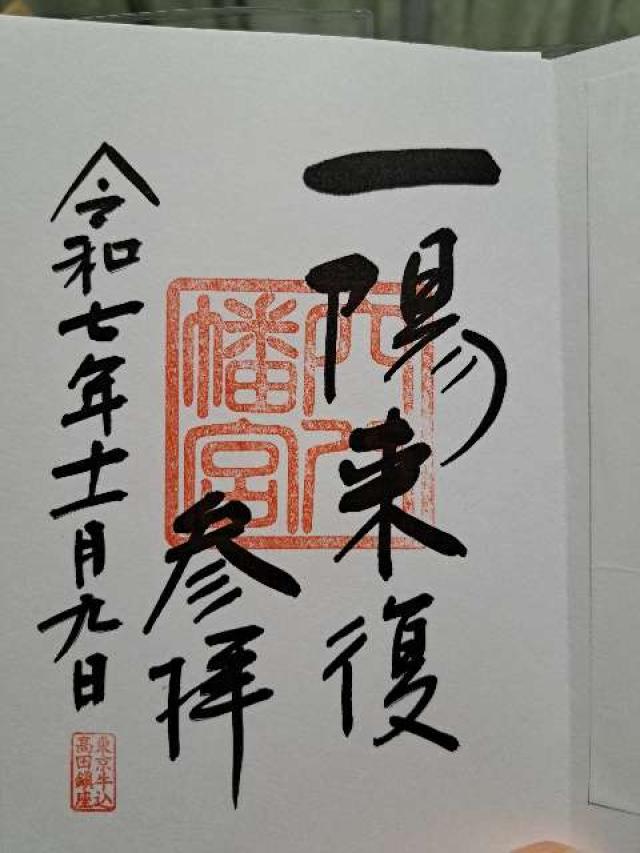 一陽来復
穴八
幡宮
参拝
令和七年十一月九日
東京牛込
高田鎮座